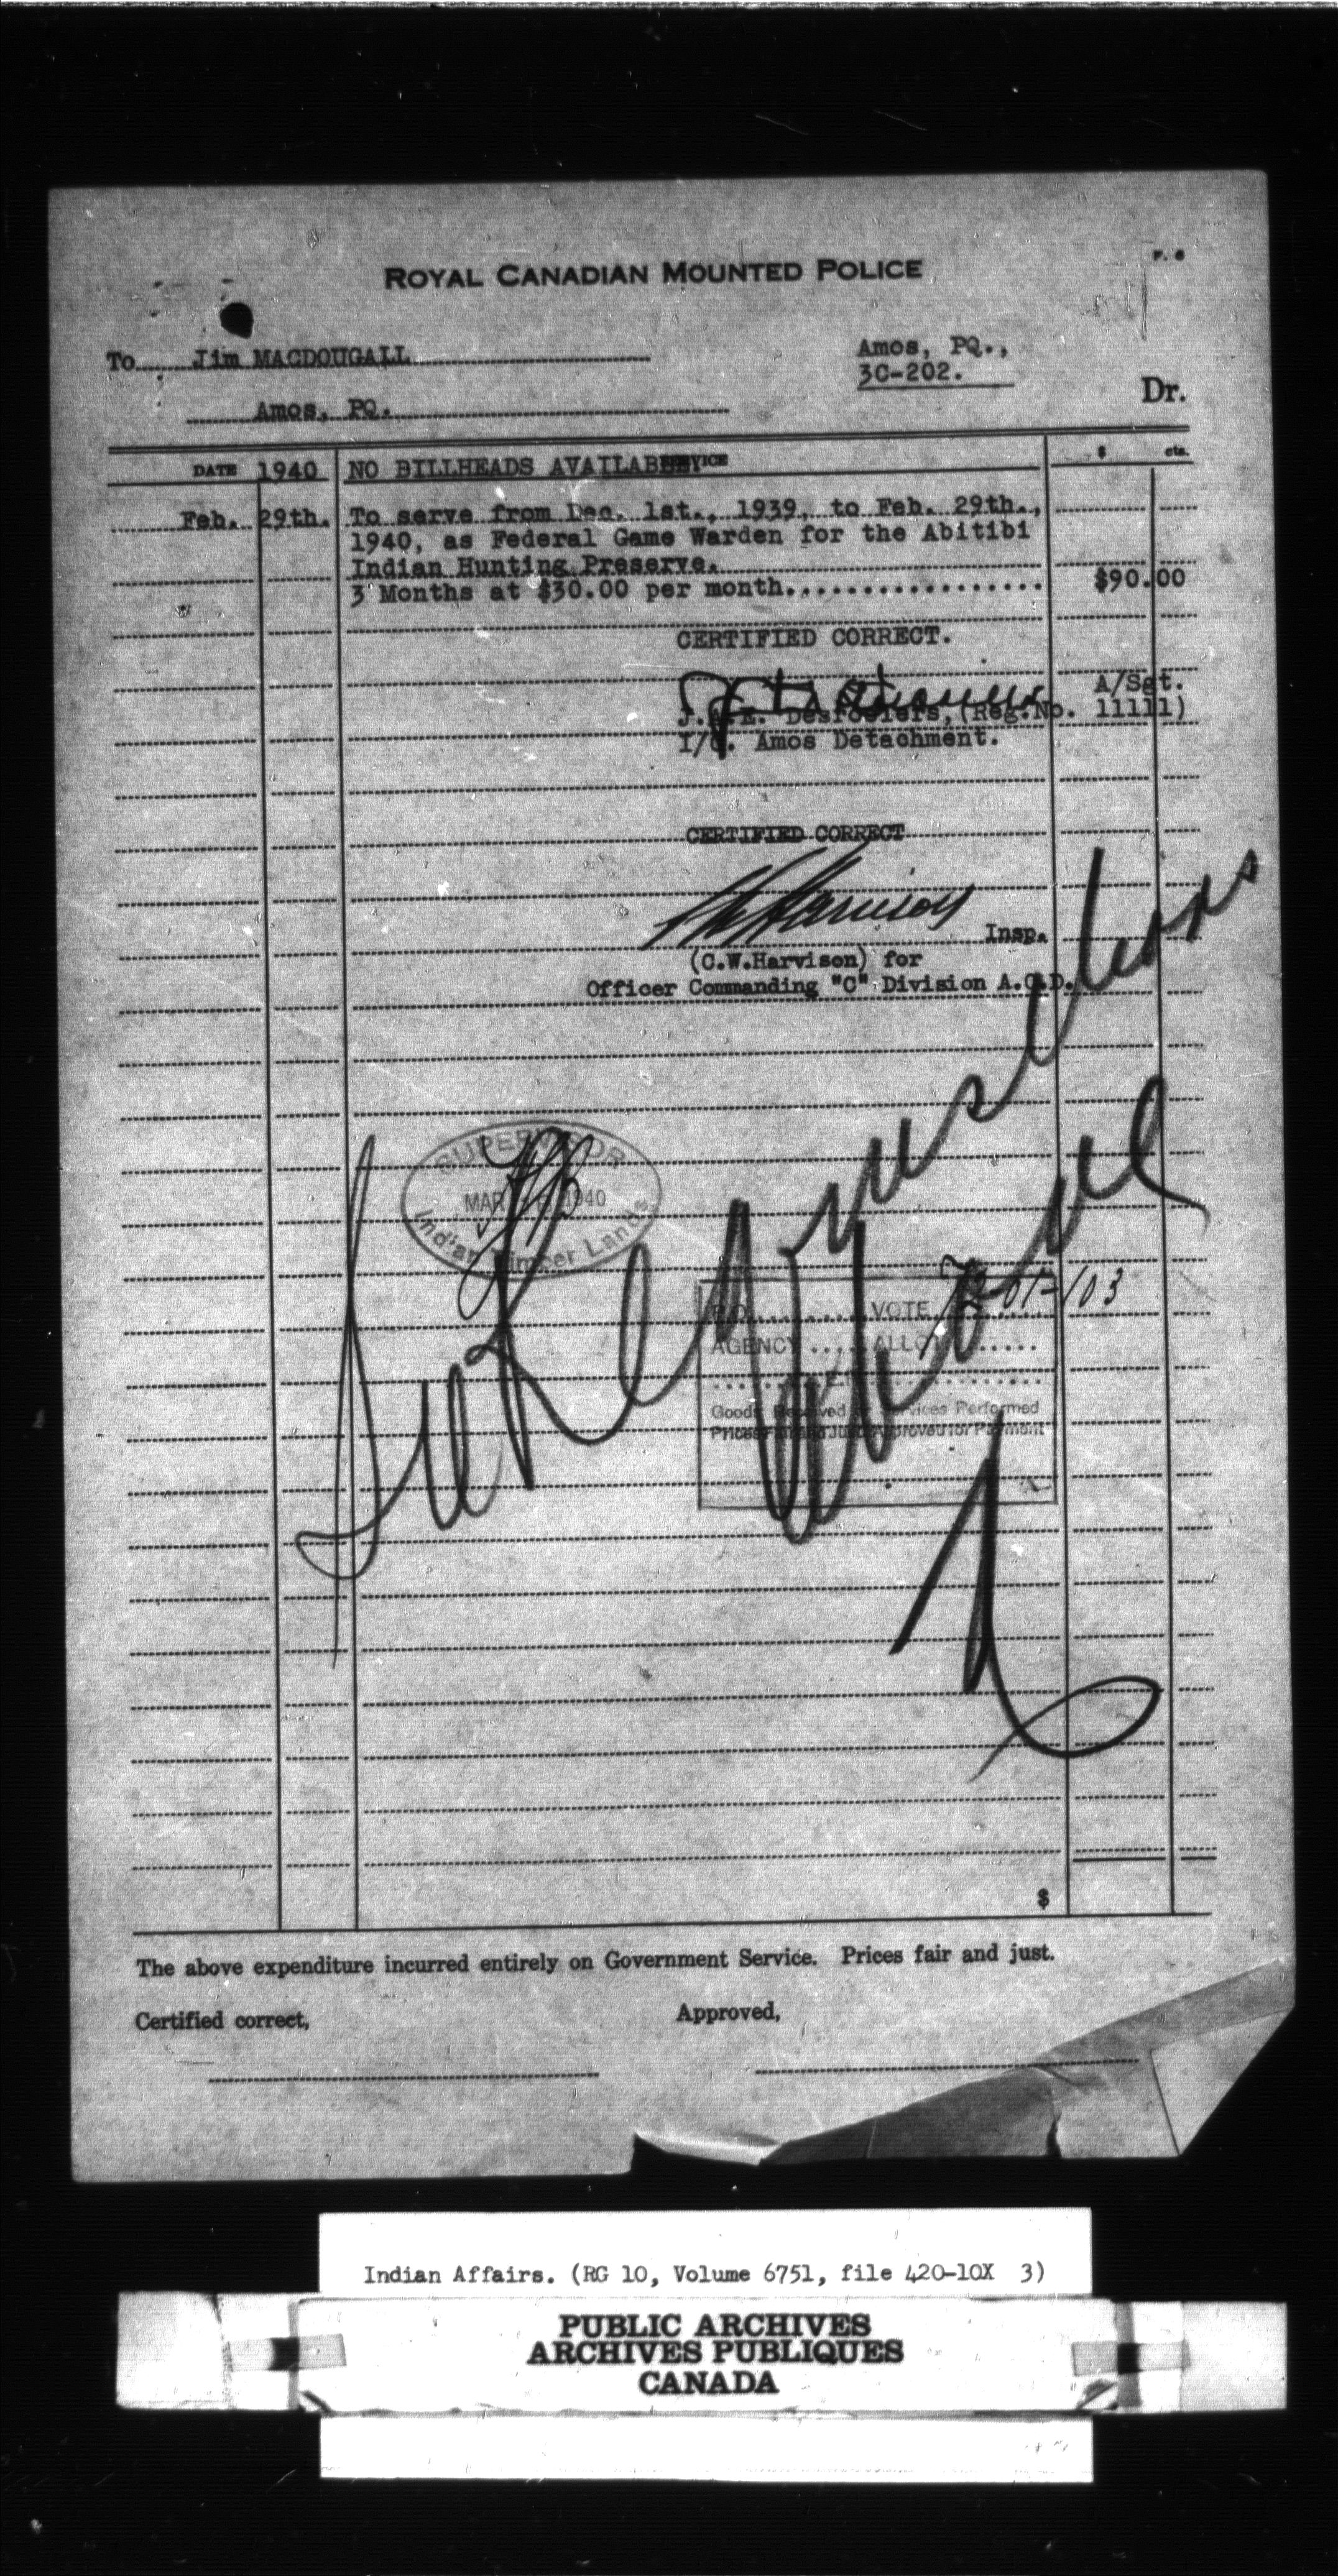 P. 6
ROYAL CANADIAN MOUNTED POLICE
To Jim MACDOUGALL
Amos, PQ.
Amos, PQ.,
3C-202.
Dr.
DATE 1940 NO BILLHEADS AVAILABLE $ cts.
Feb. 29th. To serve from Dec. 1st., 1939, to Feb. 29th.,
1940, as Federal Game Warden for the Abitibi
Indian Hunting Preserve.
3 Months at $30.00 per month................. $90.00
CERTIFIED CORRECT.
A/Sgt.
J.A.E. Desrosiers, (Reg.No. 11111)
I/C. Amos Detachment.
CERTIFIED CORRECT
Insp.
(C.W.Harvison) for
Officer Commanding "C" Division A.C.D.
SUPERVISOR
MAR 1940
Indian Timber Lands
See Requisition
P.O. VOTE
AGENCY ALLOT
Goods Received or Services Performed
Prices Fair and Just Approved for Payment
$
The above expenditure incurred entirely on Government Service. Prices fair and just.
Certified correct, Approved,
Indian Affairs. (RG 10, Volume 6751, file 420-10X 3)
PUBLIC ARCHIVES
ARCHIVES PUBLIQUES
CANADA